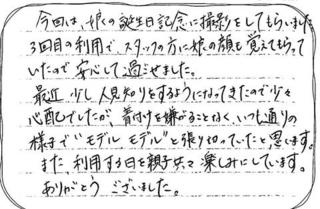 今回は、娘の誕生日記念に撮影をしてもらいました
3回目の利用で、スタッフの方に娘の顔も覚えてもらって
いたので安心して過せました。
最近 少し人見知りをするようになってきたので少々
心配でしたが、着付けを嫌がることなく、いつも通りの
様まで"モデル モデル"と張り切っていたと思います。
また、利用する日を親子共々楽しみにしています。
ありがとう ございました。